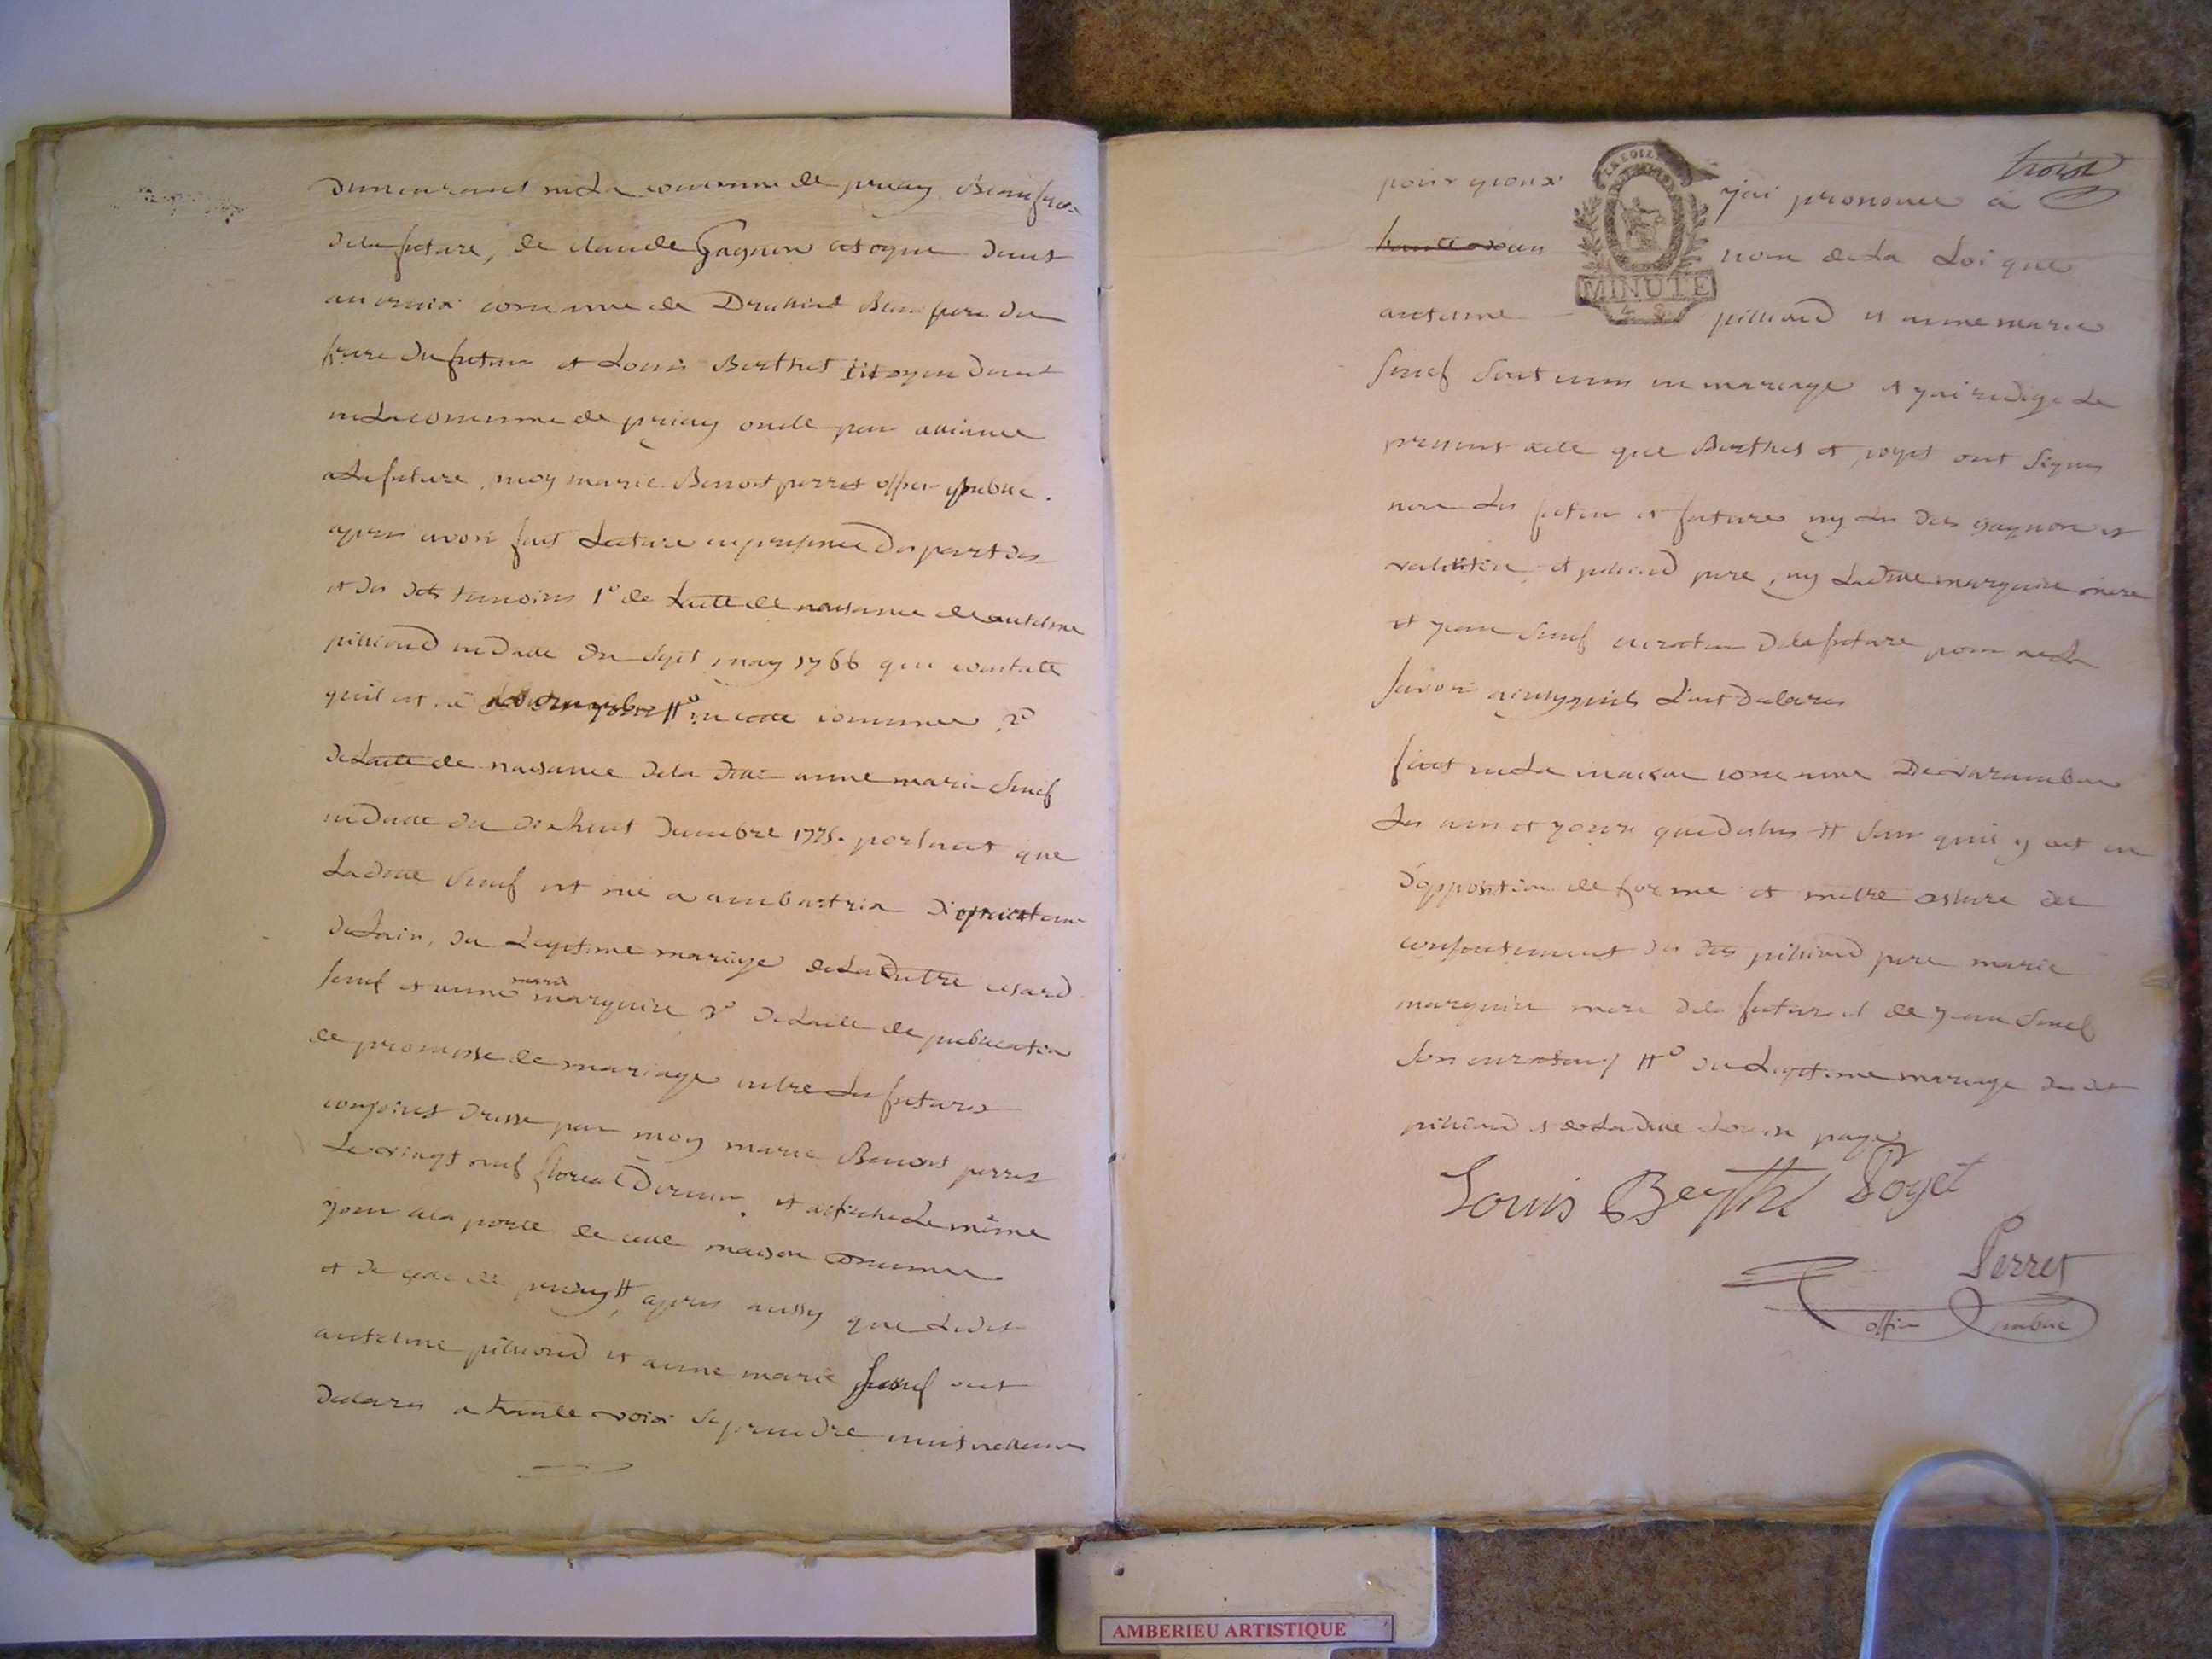 demeurant en La commune de priay Beaufrere
dela future, de claude Gagnon citoyen demt
au croix commune de Druillat Beau pere du
frere du futur et Louis Berthet citoyen demt
en La commune de priay oncle par alliance
a La future, moy marie Benoit perret offier public.
apres avoir fait Lecture en presence des parties
et des dts temoins 1° de Lacte de naissance de antelme
pilliard en date du sept may 1766 qui constate
quil est né en cette commune 2°
de Lacte de naissance dela dite anne marie
en date du dix huit decembre 1775. portant que
La dite est née a ambutrix departemt
de Lain, du Legitime mariage de
et anne marie marguire 3° de Lacte de publication
de promesse de mariage entre Les futures
conjoints dressé par moy marie Benoit perret
Le vingt neuf floreal dernier, et affiché Le même
jour a la porte de cette maison commune
et de celle de priay #, apres aussy que Ledit
antelme pilliard et anne marie ont
declarés a haute voix se prendre mutuellemt
trois
pour epoux j'ai prononcé a
haute voix au nom de La Loi que
MINUTE
4 S
antelme pilliard et anne marie
sont unis en mariage et j'ai redigé Le
present acte que Berthet et poyet ont signés
non Les futur et future ny Les dts gagnon et
et pilliard pere, ny La dite marguire mere
et jean curateur dela future pour ne La
savoir ainsy quils L'ont declarés
fait en La maison commune de varambon
Les an et jour que dessus # sans quil y ait eu
d'opposition de forme et m'etre assuré du
consentement des dts pilliard pere marie
marguire mere dela future et de jean
son curateur / #° du Legitime mariage dudit
pilliard et de La dite Louise page
Louis Beytht Poyet
Perret
offier public
AMBERIEU ARTISTIQUE